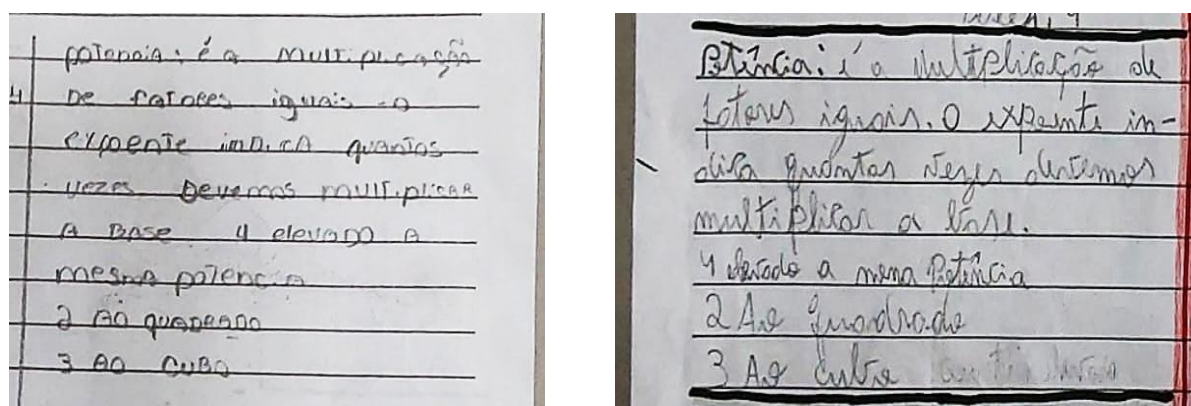 potencia: é a multiplicação
De fatores iguais - o
expoente indica quantos
vezes Devemos multiplicar
A Base 4 elevado A
mesma potencia
2 AO quadrado
3 AO CUBO
Potência: é a Multiplicação de
fatores iguais. O expoente in-
dica quantas vezes devemos
multiplicar a base.
4 elevado a mesma Potência
2 Ao quadrado
3 Ao cubo